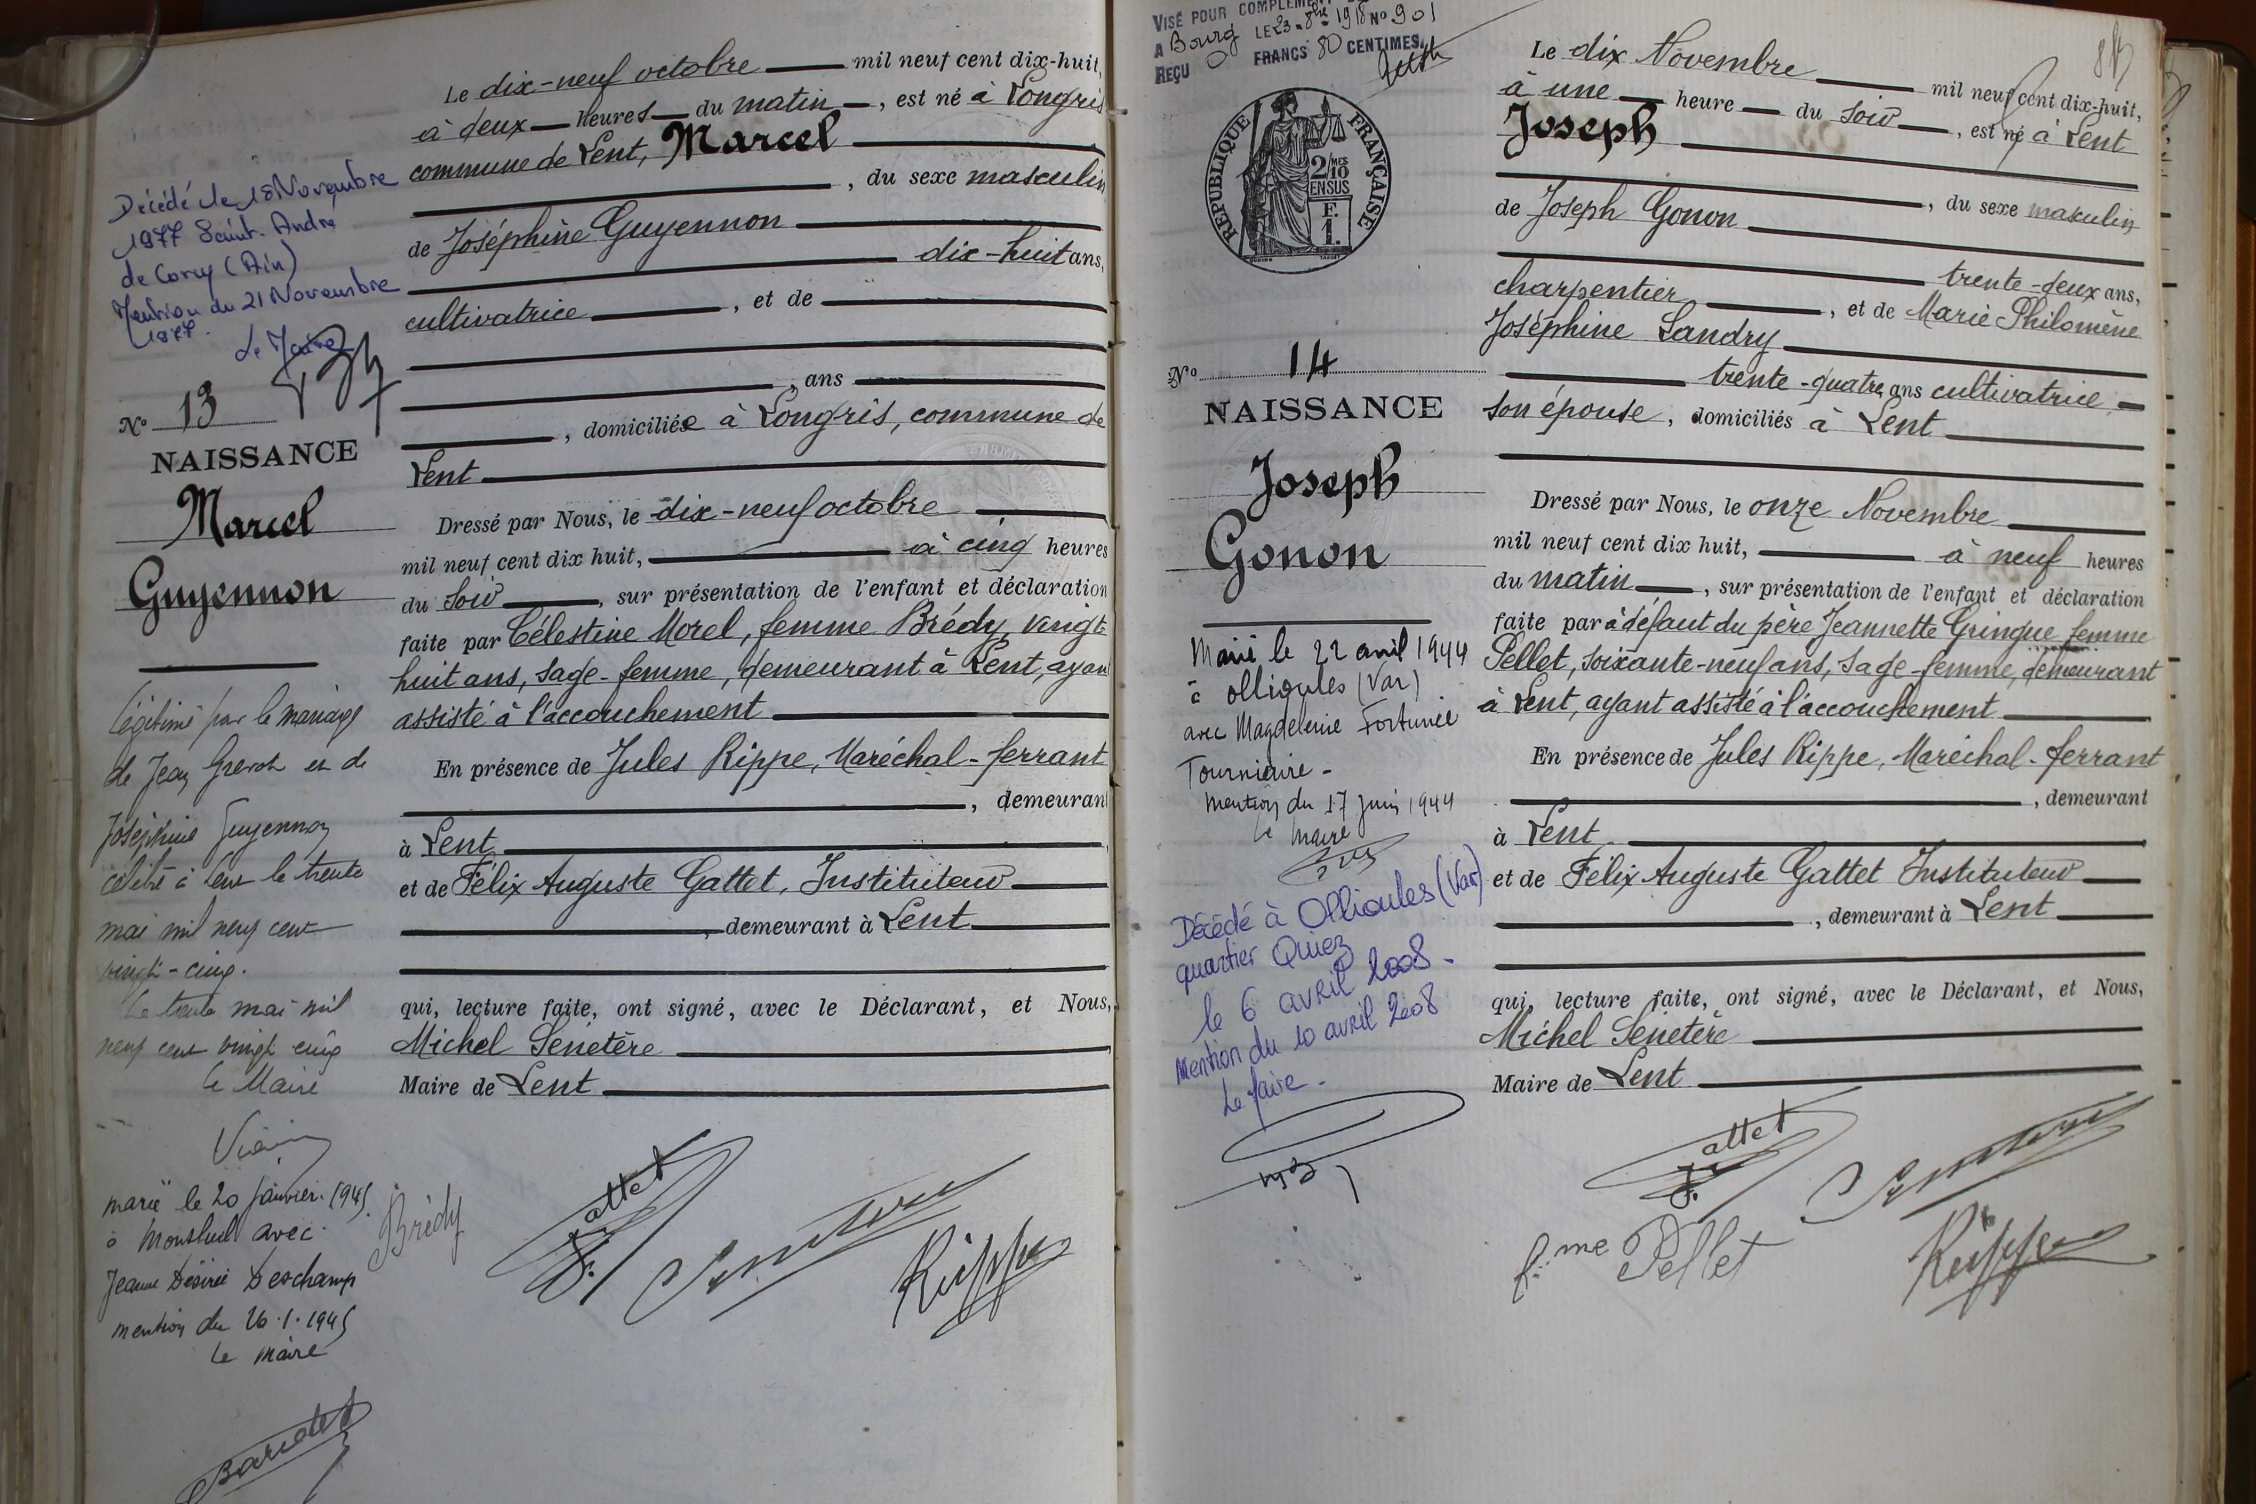 Le dix-neuf octobre mil neuf cent dix-huit,
à deux heures du matin, est né à Longris
commune de Lent, Marcel
, du sexe masculin
de Joséphine Guyennon
dix-huit ans,
cultivatrice, et de
, ans
, domiciliée à Longris, commune de
Lent
Dressé par Nous, le dix-neuf octobre
mil neuf cent dix huit, à cinq heures
du soir, sur présentation de l'enfant et déclaration
faite par Célestine Morel, femme Brédy, vingt
huit ans, sage-femme, demeurant à Lent, ayan
assisté à l'accouchement
En présence de Jules Rippe, Maréchal-ferrant
, demeuran
à Lent
et de Félix Auguste Gattet, Instituteur
, demeurant à Lent
qui, lecture faite, ont signé, avec le Déclarant, et Nous,
Michel Senetère
Maire de Lent
Brédy
F. Gattet
Senetère
Rippe
Décédé le 18 Novembre
1977 Saint-André
de Corcy (Ain)
Mention du 21 Novembre
1977.
Le Maire
No 13
NAISSANCE
Marcel
Guyennon
Légitimé par le mariage
de Jean et de
Joséphine Guyennon
célébré à Lent le trente
mai mil neuf cent
vingt-cinq.
Le trente mai mil
neuf cent vingt cinq
Le Maire
marié le 20 janvier 1945
à Montluel avec
Jeanne Désirée Deschamp
mention du 26.1.1945
Le maire
VISÉ POUR COMPLÉMENT
A Bourg LE 23 8bre 1918 No 901
REÇU 0 FRANCS 80 CENTIMES
RÉPUBLIQUE FRANÇAISE
2/10 MES
EN SUS
F.
1.
No 14
NAISSANCE
Joseph
Gonon
Marié le 22 avril 1944
à Ollioules (Var)
avec Magdeleine Fortunée
Tourniaire -
mention du 17 juin 1944
Le maire
Décédé à Ollioules (Var)
quartier Quiez
le 6 avril 2008 -
Mention du 10 avril 2008
Le Maire -
Le dix Novembre mil neuf cent dix-huit,
à une heure du soir, est né à Lent
Joseph
, du sexe masculin
de Joseph Gonon
trente-deux ans,
charpentier, et de Marie Philomène
Joséphine Landry
trente-quatre ans cultivatrice,
son épouse, domiciliés à Lent
Dressé par Nous, le onze Novembre
mil neuf cent dix huit, à neuf heures
du matin, sur présentation de l'enfant et déclaration
faite par à défaut du père Jeannette Gringue femme
Pellet, soixante-neuf ans, sage-femme, demeurant
à Lent, ayant assisté à l'accouchement
En présence de Jules Rippe, Maréchal-ferrant
, demeurant
à Lent
et de Félix Auguste Gattet Instituteur
, demeurant à Lent
qui, lecture faite, ont signé, avec le Déclarant, et Nous,
Michel Senetère
Maire de Lent
F. Gattet
Senetère
fme Pellet
Rippe